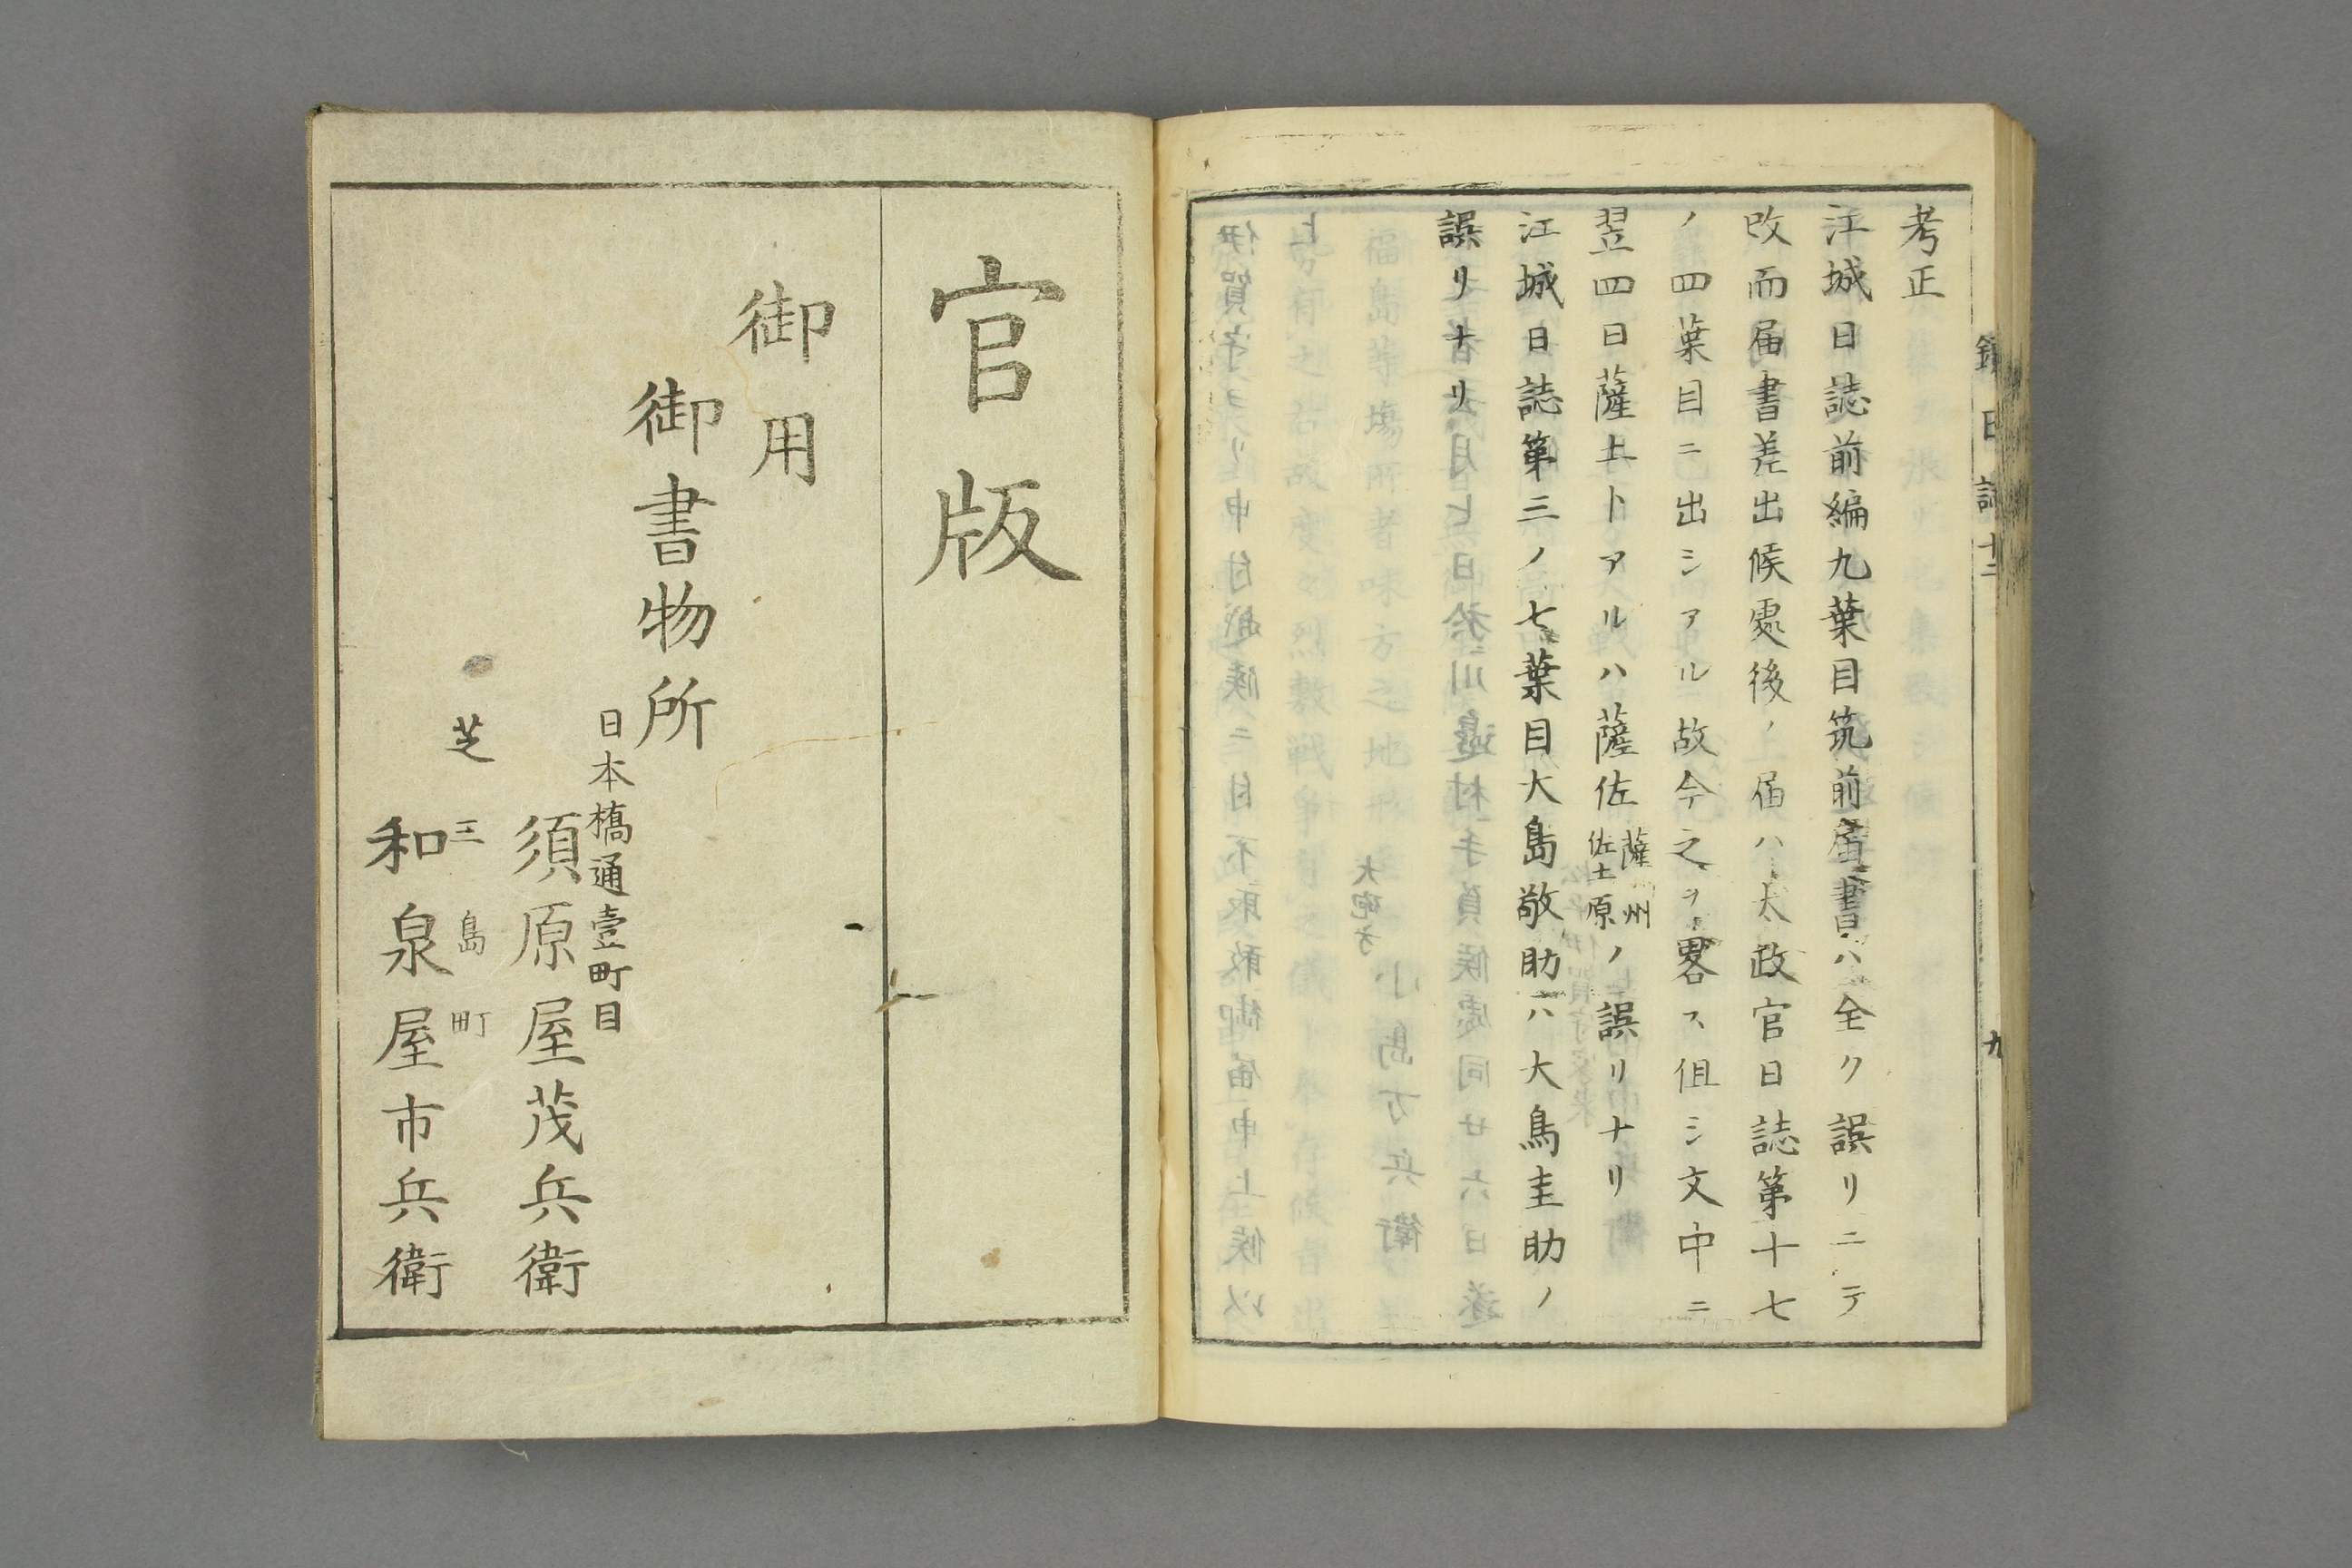 考正
江城日誌前編九葉目筑前届書ハ全ク誤リニテ
改而届書差出候處後ノ届ハ太政官日誌第十七
ノ四葉目ニ出シアル故今之ヲ畧ス但シ文中ニ
翌四日薩土トアルハ薩佐薩州佐土原ノ誤リナリ
江城日誌第三ノ七葉目大島敬助ハ大鳥圭助ノ
誤リナリ
日誌十二
九
官版
御用
御書物所
日本橋通壹町目
須原屋茂兵衛
芝三島町
和泉屋市兵衛